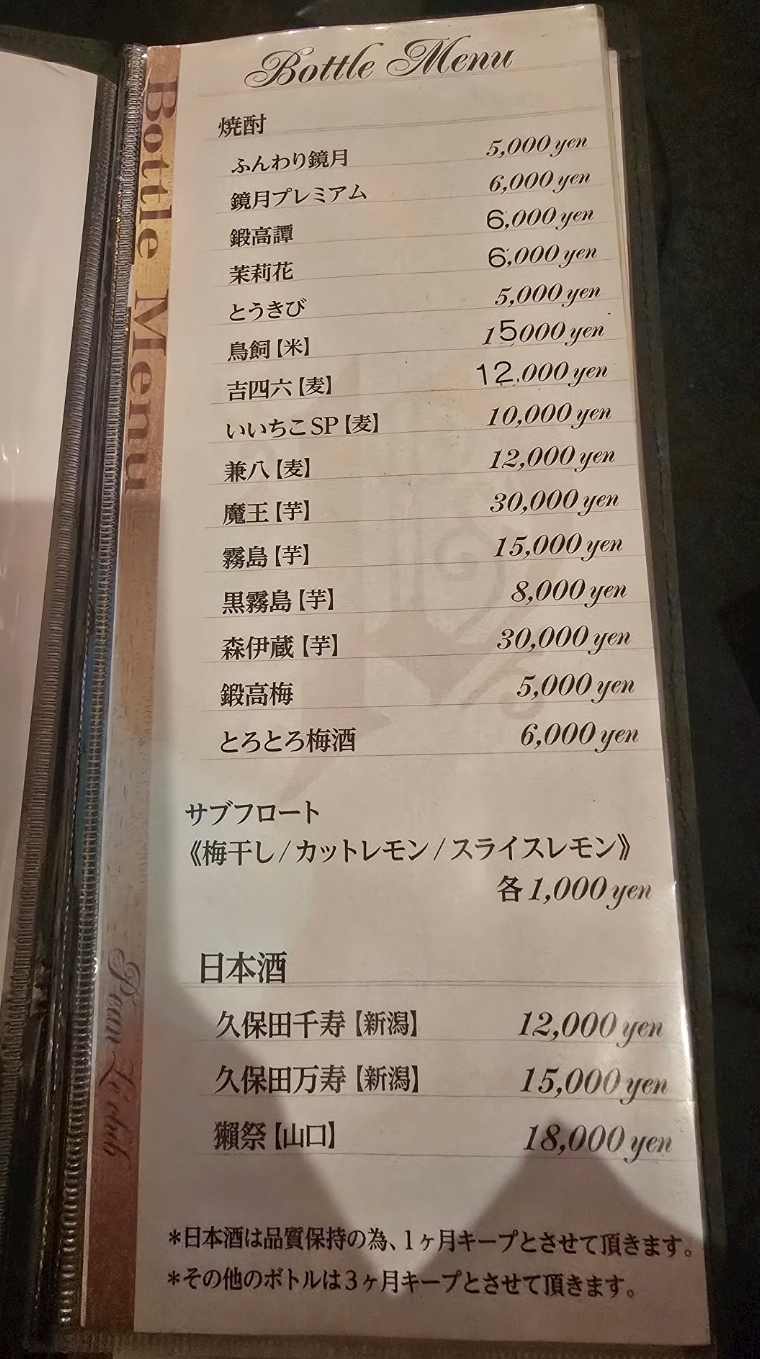 Bottle Menu
Bottle Menu
焼酎
ふんわり鏡月 5,000 yen
鏡月プレミアム 6,000 yen
鍛高譚 6,000 yen
茉莉花 6,000 yen
とうきび 5,000 yen
鳥飼【米】 15000 yen
吉四六【麦】 12,000 yen
いいちこSP【麦】 10,000 yen
兼八【麦】 12,000 yen
魔王【芋】 30,000 yen
霧島【芋】 15,000 yen
黒霧島【芋】 8,000 yen
森伊蔵【芋】 30,000 yen
鍛高梅 5,000 yen
とろとろ梅酒 6,000 yen
サブフロート
《梅干し/カットレモン/スライスレモン》
各1,000 yen
日本酒
久保田千寿【新潟】 12,000 yen
久保田万寿【新潟】 15,000 yen
獺祭【山口】 18,000 yen
*日本酒は品質保持の為、1ヶ月キープとさせて頂きます。
*その他のボトルは3ヶ月キープとさせて頂きます。